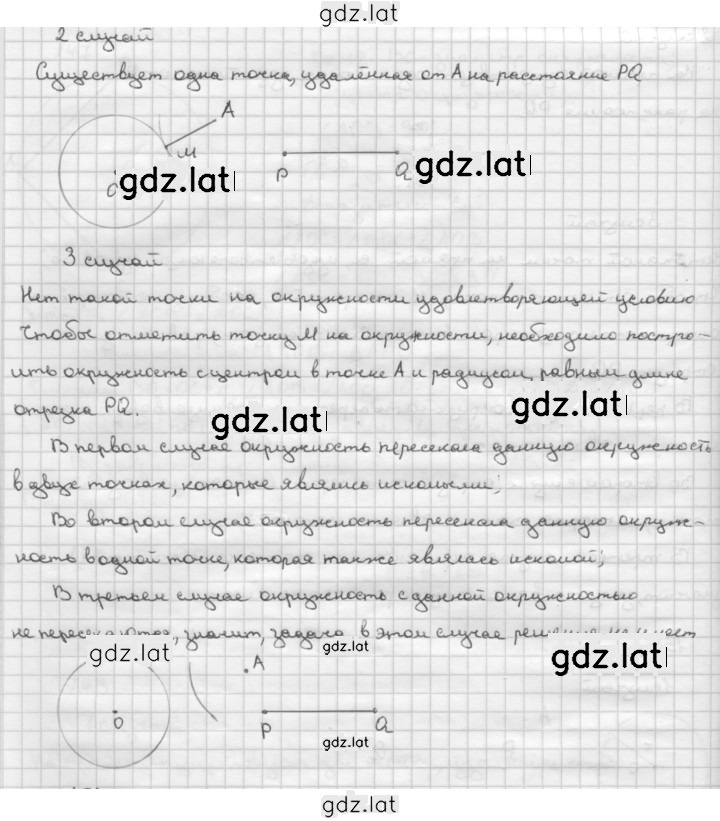 gdz.lat
2 случай
Существует одна точка, удалённая от А на расстояние PQ
A
M
O
gdz.lat
P
Q
gdz.lat
3 случай
Нет такой точки на окружности удовлетворяющей условию
Чтобы отметить точку М на окружности, необходимо постро-
ить окружность с центром в точке А и радиусом, равным длине
отрезка PQ.
gdz.lat
gdz.lat
В первом случае окружность пересекала данную окружность
в двух точках, которые являлись искомыми;
Во втором случае окружность пересекала данную окруж-
ность в одной точке, которая также являлась искомой;
В третьем случае окружность с данной окружностью
не пересекаются, значит, задача в этом случае решения не имеет
gdz.lat
gdz.lat
gdz.lat
A
O
P
Q
gdz.lat
gdz.lat